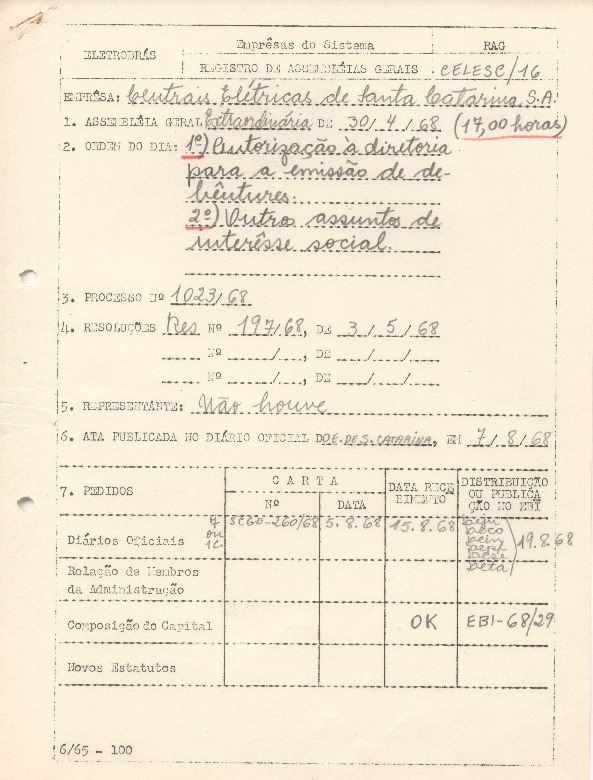 ELETROBRÁS
Emprêsas do Sistema
RAG
REGISTRO DE ASSEMBLÉIAS GERAIS
CELESC/16
EMPRÊSA: Centrais Elétricas de Santa Catarina, S.A.
1. ASSEMBLÉIA GERAL Extraordinária DE 30/4/68 (17,00 horas)
2. ORDEM DO DIA: 1º) Autorização à diretoria
para a emissão de de-
bêntures.
2º) Outro assunto de
interêsse social.
3. PROCESSO Nº 1023/68
4. RESOLUÇÕES Res Nº 197/68, DE 3/5/68
Nº / , DE / /
Nº / , DE / /
5. REPRESENTANTE: Não houve
6. ATA PUBLICADA NO DIÁRIO OFICIAL DO E. DE S. CATARINA, EM 7/8/68
7. PEDIDOS
CARTA
Nº
DATA
DATA RECE
BIMENTO
DISTRIBUIÇÃO
OU PUBLICA
ÇÃO NO EBI
Diários Oficiais
7
ou
1c.
SCGE-260/68
5.8.68
15.8.68
beco
beta
19.8.68
Relação de Membros
da Administração
Composição do Capital
OK
EBI-68/29
Novos Estatutos
6/65 - 100